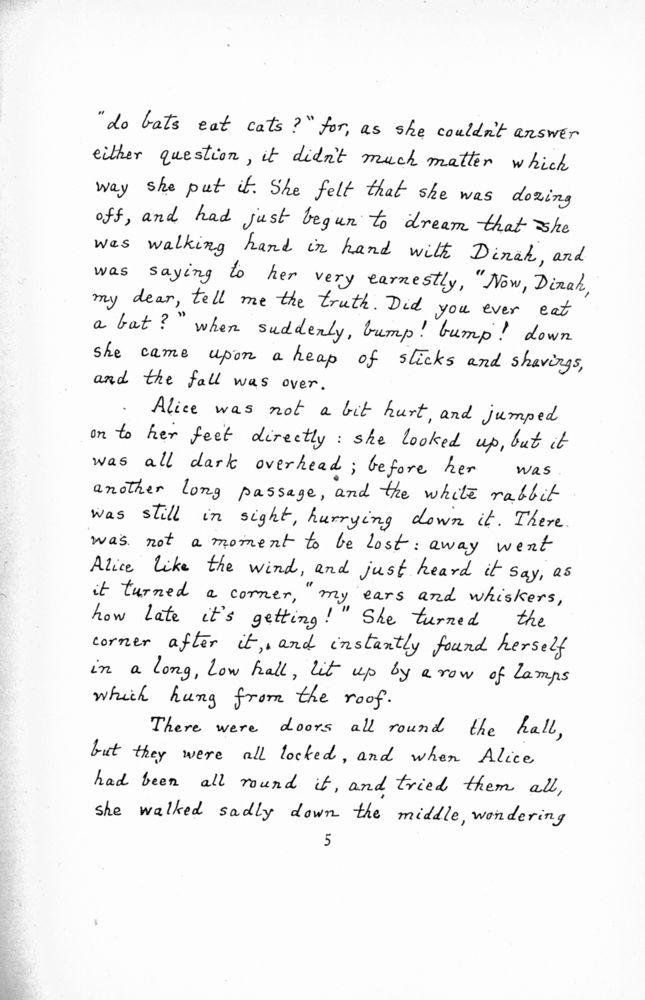 "do bats eat cats?" for, as she couldn't answer
either question, it didn't much matter which
way she put it. She felt that she was dozing
off, and had just begun to dream that she
was walking hand in hand with Dinah, and
was saying to her very earnestly, "Now, Dinah,
my dear, tell me the truth. Did you ever eat
a bat?" when suddenly, bump! bump! down
she came upon a heap of sticks and shavings,
and the fall was over.
Alice was not a bit hurt, and jumped
on to her feet directly: she looked up, but it
was all dark overhead; before her was
another long passage, and the white rabbit
was still in sight, hurrying down it. There
was not a moment to be lost: away went
Alice like the wind, and just heard it say, as
it turned a corner, "my ears and whiskers,
how late it's getting!" She turned the
corner after it, and instantly found herself
in a long, low hall, lit up by a row of lamps
which hung from the roof.
There were doors all round the hall,
but they were all locked, and when Alice
had been all round it, and tried them all,
she walked sadly down the middle, wondering
5